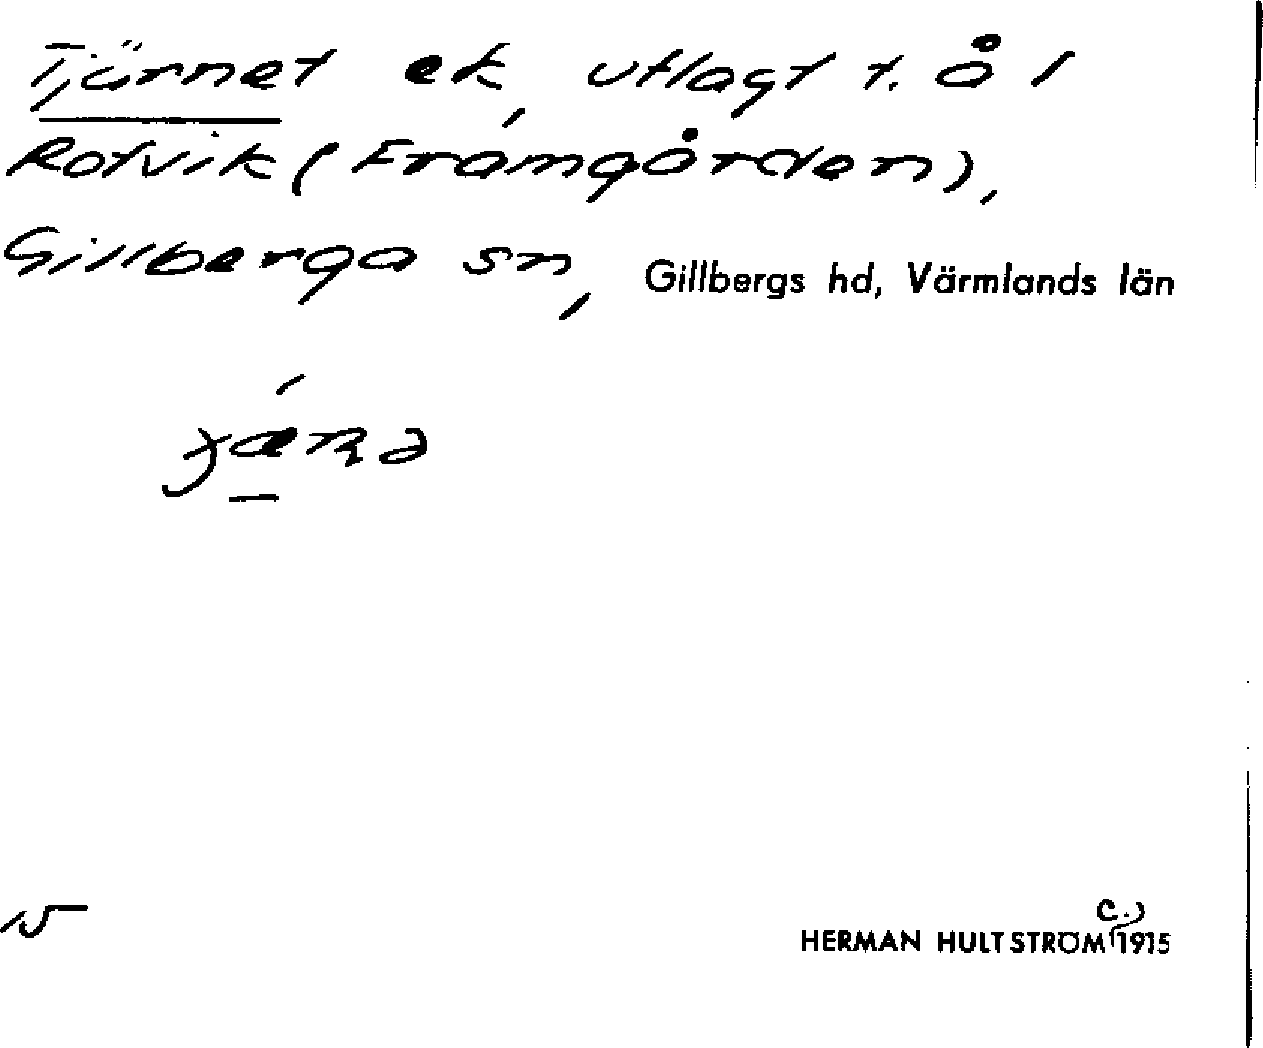 Tjärnet ek, utlagt t. å 1
Rotvik (Framgården),
Gillberga sn, Gillbergs hd, Värmlands län
15
c.)
HERMAN HULTSTRÖM 1915